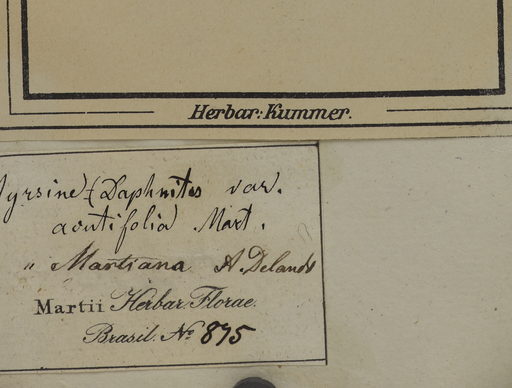 Herbar: Kummer.
Myrsine (Daphnites var.
acutifolia Mart.
" Martiana A. Deland
Martii Herbar. Florae.
Brasil. No 875